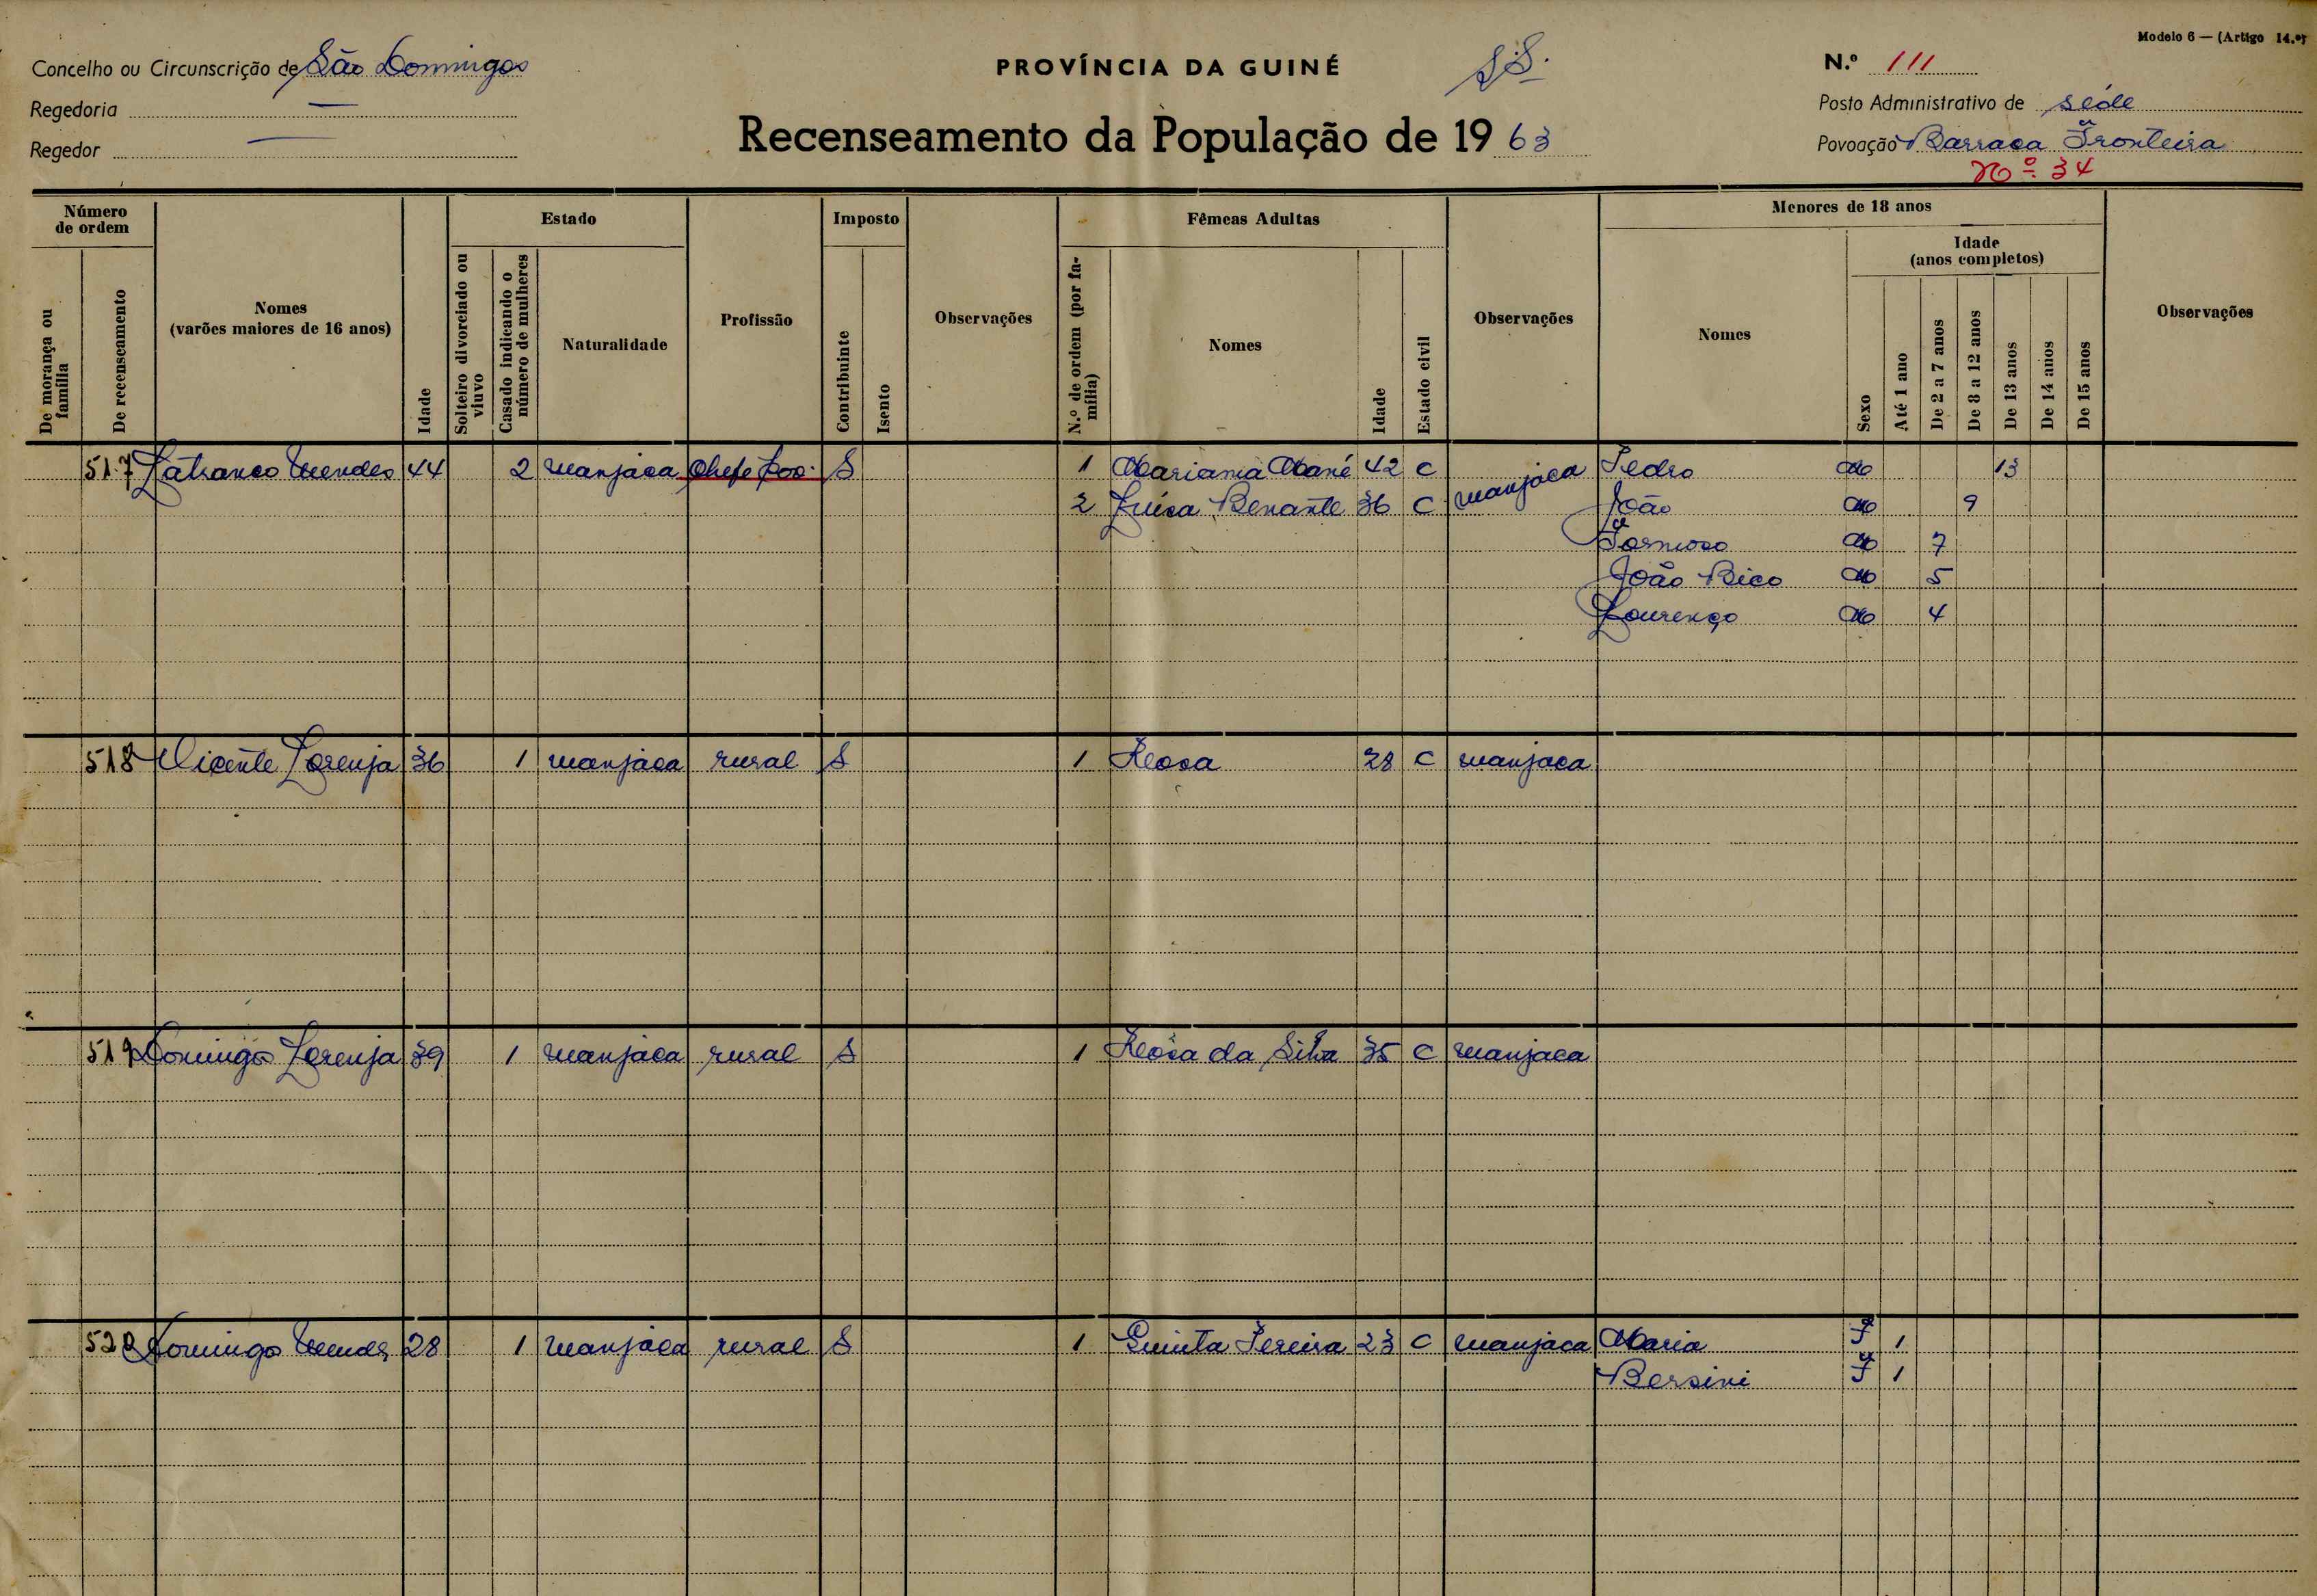 Modelo 6 — (Artigo 14.º)
Concelho ou Circunscrição de São Domingos
PROVÍNCIA DA GUINÉ
N.º 111
Regedoria —
Posto Administrativo de séde
Regedor —
Recenseamento da População de 1963
Povoação Barraca Fronteira
Nº 34
Número de ordem
De morança ou família
De recenseamento
Nomes
(varões maiores de 16 anos)
Idade
Estado
Solteiro divorciado ou viuvo
Casado indicando o número de mulheres
Naturalidade
Profissão
Imposto
Contribuinte
Isento
Observações
Fêmeas Adultas
N.º de ordem (por família)
Nomes
Idade
Estado civil
Observações
Menores de 18 anos
Nomes
Sexo
Idade
(anos completos)
Até 1 ano
De 2 a 7 anos
De 8 a 12 anos
De 13 anos
De 14 anos
De 15 anos
Observações
517 Mendes 44 2 manjaca Chefe S 1 Mariama Mané 42 c manjaca Pedro M 13
2 Luísa Benante 36 c João M 9
Formoso M 7
João Bico M 5
Lourenço M 4
518 Vicente Lorenja 36 1 manjaca rural S 1 Rosa 28 c manjaca
519 Domingos Lorenja 39 1 manjaca rural S 1 Rosa da Silva 35 c manjaca
520 Domingos Mendes 28 1 manjaca rural S 1 Quinta Pereira 23 c manjaca Maria F 1
Bersini F 1